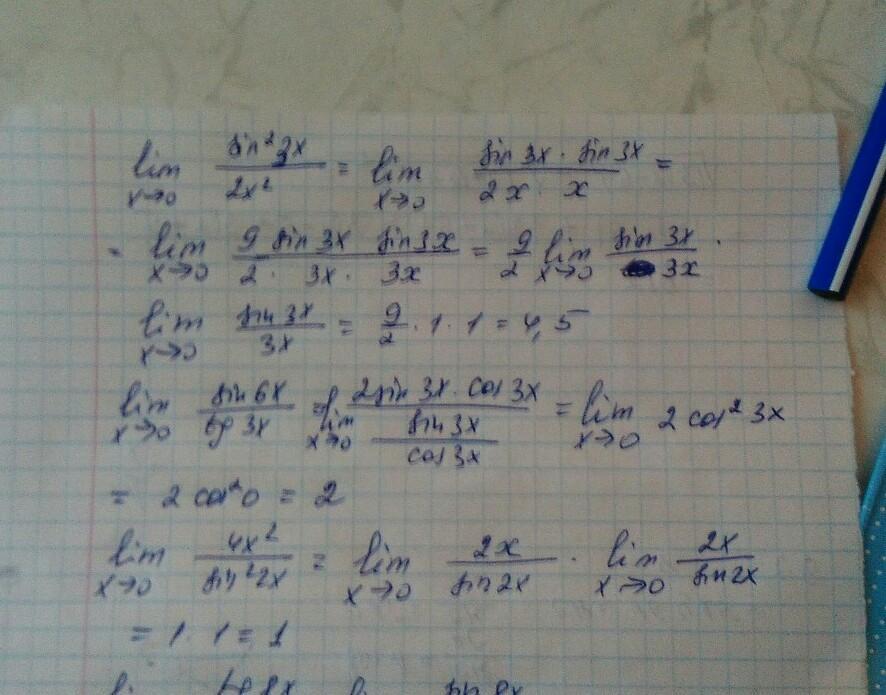 lim x→0 sin²3x / 2x² = lim x→0 sin 3x · sin 3x / 2x · x =
= lim x→0 9 sin 3x sin 3x / 2 · 3x · 3x = 9/2 lim x→0 sin 3x / 3x ·
lim x→0 sin 3x / 3x = 9/2 · 1 · 1 = 4,5
lim x→0 sin 6x / tg 3x = lim x→0 2 sin 3x · cos 3x / (sin 3x / cos 3x) = lim x→0 2 cos² 3x
= 2 cos² 0 = 2
lim x→0 4x² / sin² 2x = lim x→0 2x / sin 2x · lim x→0 2x / sin 2x
= 1 · 1 = 1